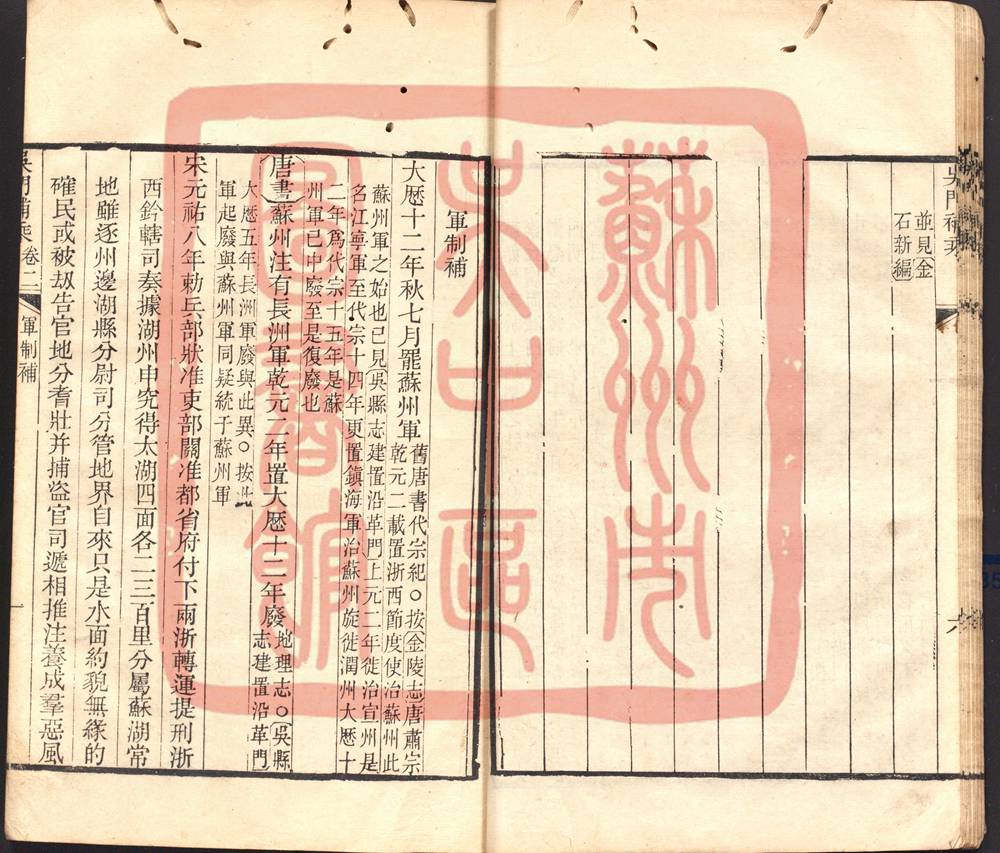 吳門補乘
並見金
石新編
六
軍制補
大歷十二年秋七月罷蘇州軍舊唐書代宗紀○按金陵志唐肅宗
乾元二載置浙西節度使治蘇州此
蘇州軍之始也已見吳縣志建置沿革門上元二年徙治宣州是
名江寧軍至代宗十四年更置鎮海軍治蘇州旋徙潤州大歷十
二年爲代宗十五年是蘇
州軍已中廢至是復廢也
唐書蘇州注有長洲軍乾元二年置大歷十二年廢地理志○吳縣
志建置沿革門
大歷五年長洲軍廢與此異○按此
軍起廢與蘇州軍同疑統于蘇州軍
宋元祐八年勅兵部狀准吏部關准都省府付下兩浙轉運提刑浙
西鈐轄司奏據湖州申究得太湖四面各二三百里分屬蘇湖常
地雖逐州邊湖縣分尉司分管地界自來只是水面約貌無緣的
確民或被刼告官地分耆壯并捕盜官司遞相推注養成羣惡風
吳門補乘 卷二 軍制補
一
蘇州市
吳中區
圖書館